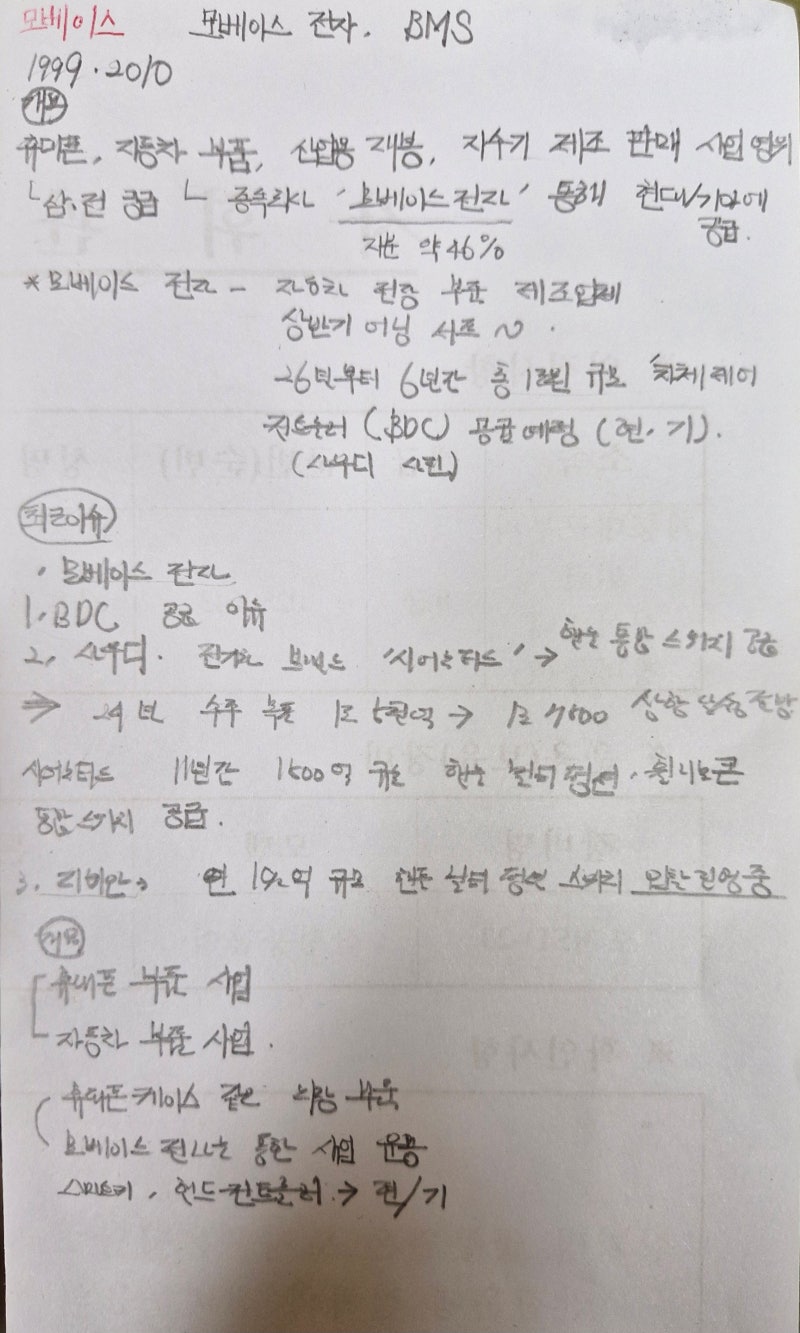 모베이스 모베이스 전자. BMS
1999. 2010
개요
휴대폰, 자동차 부품, 산업용 재봉, 자수기 제조 판매 사업 영위
└삼.전 공급 └ 종속회사 '모베이스전자' 통해 현대/기아에
공급.
지분 약 46%
* 모베이스 전자 - 자동차 전장 부품 제조업체
상반기 어닝 서프 ~
26년부터 6년간 총 1조원 규모 '차체제어
컨트롤러 (BDC) 공급예정 (현.기).
(사우디 시핀)
최근이슈
· 모베이스 전자
1. BDC 공급 이유
2. 사우디. 전기차 브랜드 '시어모터스' → 핸들 통합 스위치 공급
⇒ 24년 수주 목표 1조 5천억 → 1조 7500 상향 달성 전망
시어모터스 11년간 1500억 규모 핸들 히터 정전. 흰지노콘
통합 스위치 공급.
3. 리비안 → 연 192억 규모 핸들 히터 정전 스위치 입찰 진행 중
개요
휴대폰 부품 사업
자동차 부품 사업.
휴대폰케이스 같은 외장 부품
모베이스 전자를 통한 사업 운용
스마트키, 헌드컨트롤러 → 현/기